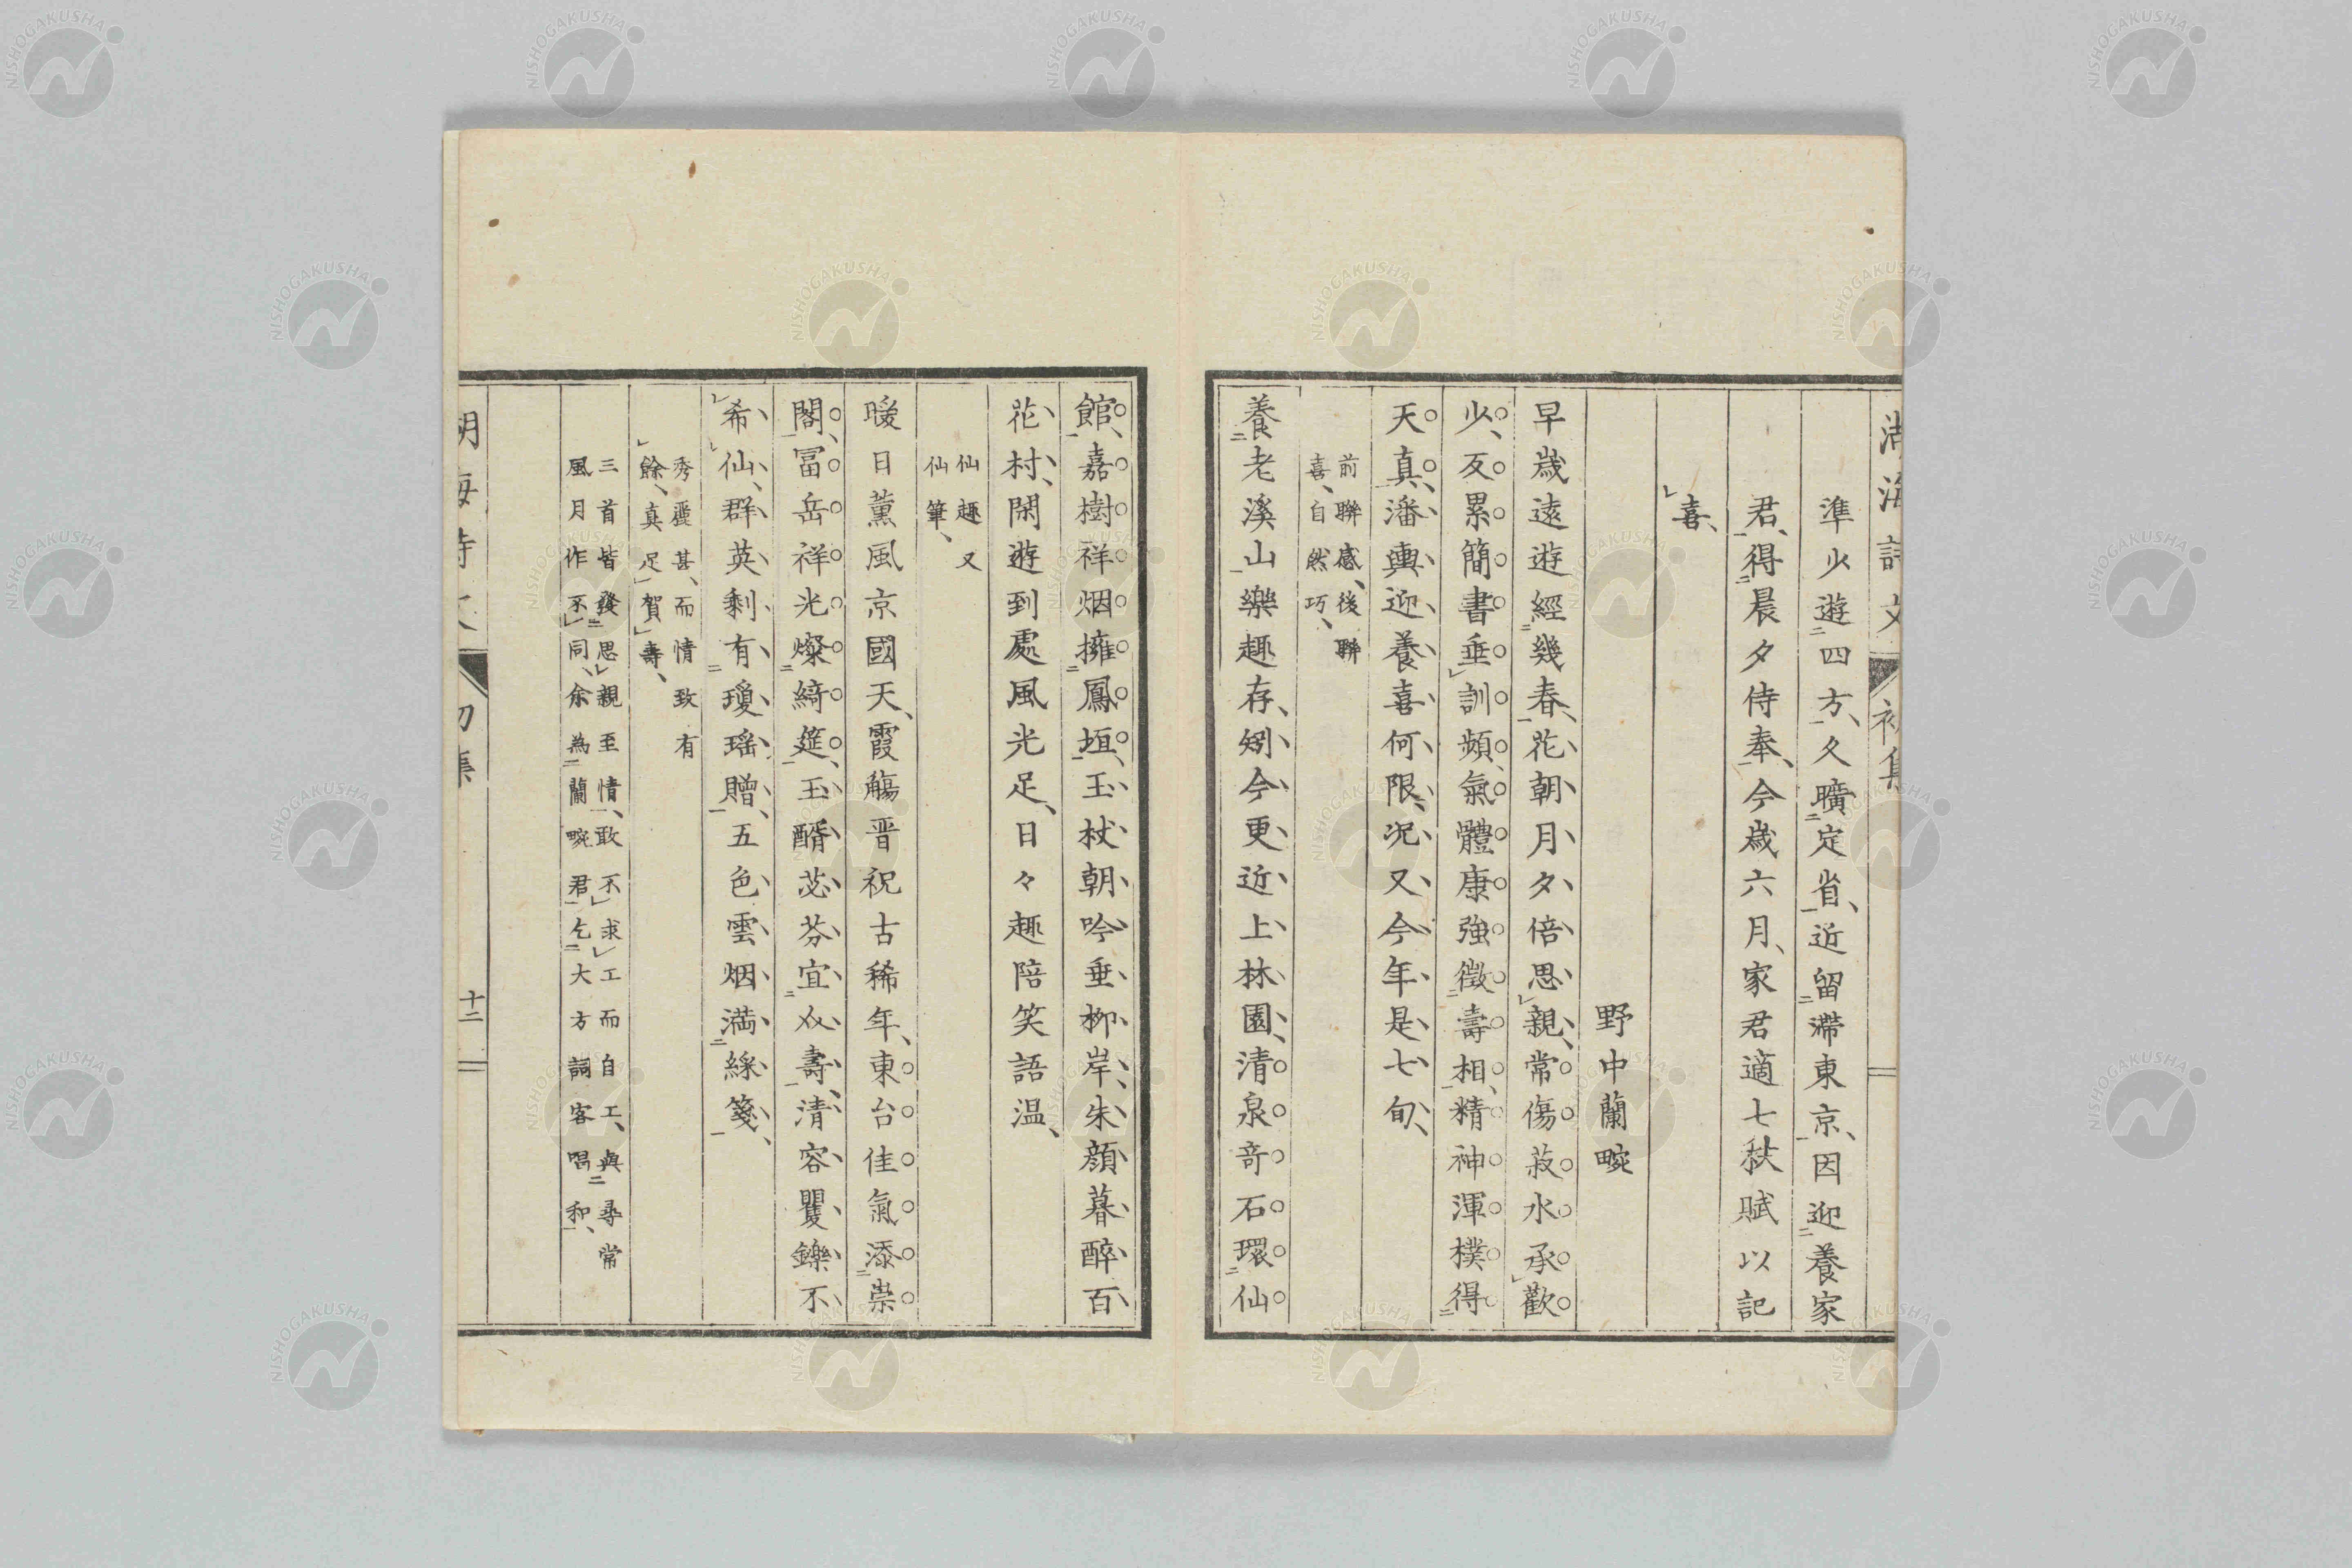 湖海詩文 初集
準少遊四方、久曠定省、近留滯東京、因迎養家
君、得晨夕侍奉、今歲六月、家君適七秩賦以記
喜、
野中蘭畹
早歲遠遊經幾春、花朝月夕倍思親、常傷菽水承歡
少、反累簡書垂訓頻、氣體康強徵壽相、精神渾樸得
天真、潘輿迎養喜何限、况又今年是七旬、
前聯感、後聯
喜、自然巧、
養老溪山樂趣存、矧今更近上林園、清泉奇石環仙
館、嘉樹祥烟擁鳳垣、玉杖朝吟垂柳岸、朱顔暮醉百
花村、閑遊到處風光足、日々趣陪笑語温、
仙趣又
仙筆、
暖日薰風京國天、霞觴晋祝古稀年、東台佳氣添崇
閣、冨岳祥光燦綺筵、玉醑苾芬宜介壽、清容矍鑠不
希仙、群英剩有瓊瑶贈、五色雲烟満綵箋、
秀麗甚、而情致有
餘、真足賀壽、
三首皆發思親至情、敢不求工而自工、與尋常
風月作不同、余為蘭畹君乞大方詞客唱和、
湖海詩文 初集 十二
NISHOGAKUSHA